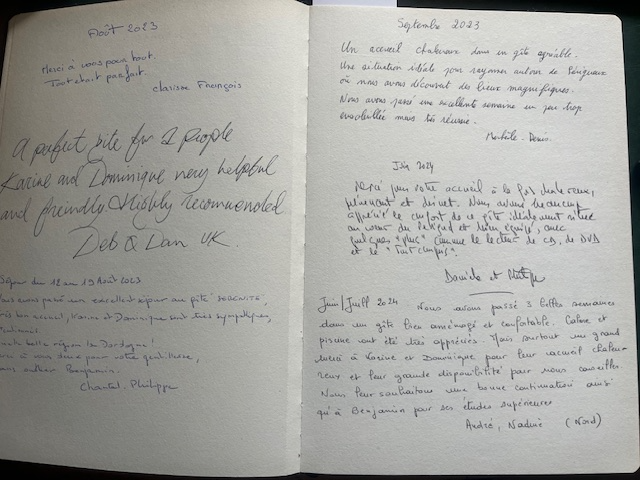 Août 2023
Merci à vous pour tout.
Tout était parfait.
Clarisse François
A perfect site for 2 people
Karine and Dominique very helpful
and friendly. Highly recommended
Deb & Dan UK.
Séjour du 12 au 19 Août 2023
avons passé un excellent séjour au gîte SERENITE,
bon accueil, Karine et Dominique sont très sympathiques,
belle région la Dordogne !
à vous deux pour votre gentillesse,
Benjamin.
Chantal. Philippe
Septembre 2023
Un accueil chaleureux dans un gîte agréable.
Une situation idéale pour rayonner autour de Périgueux
où nous avons découvert des lieux magnifiques.
Nous avons passé une excellente semaine un peu trop
ensoleillée mais très réussie.
Denis.
Juin 2024
Merci pour votre accueil à la fois chaleureux,
prévenant et discret. Nous avons beaucoup
apprécié le confort de ce gîte idéalement situé
au coeur du Périgord et bien équipé, avec
quelques "plus" comme le lecteur de CD, de DVD
et le
Danièle et Philippe
Juin/Juill 2024 Nous avons passé 3 belles semaines
dans un gîte bien aménagé et confortable. Calme et
piscine ont été très appréciés. Mais surtout un grand
merci à Karine et Dominique pour leur accueil chaleu-
reux et leur grande disponibilité pour nous conseiller.
Nous leur souhaitons une bonne continuation ainsi
qu'à Benjamin pour ses études supérieures
André, Nadine (Nord)